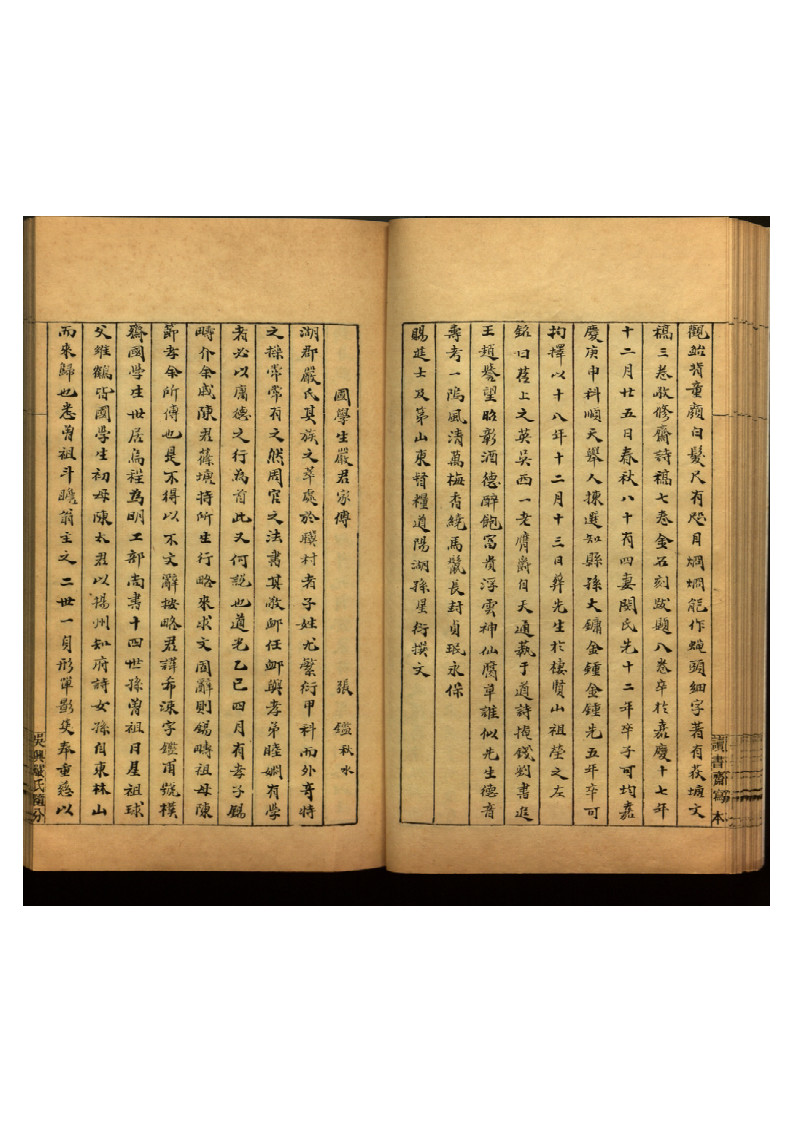 觀鮐背童顏白髮尺有咫目烱烱能作蝇頭細字著有荻塘文
稿三卷敬修齋詩稿七卷金石刻跋題八卷卒於嘉慶十七年
十二月廿五日春秋八十有四妻閔氏先十二年卒子可均嘉
慶庚申科順天舉人揀選知縣孫大鏞金鍾金鍾先五年卒可
均擇以十八年十二月十三日葬先生於棲賢山祖塋之左
銘曰苕上之英吳西一老膺爵自天通蓺于道詩
王趙譽望昭彰酒德醉飽富貴浮雲神仙腐草誰似先生德音
壽考一塢風清萬梅香繞馬鬛長封貞珉永保
賜進士及第山東督糧道陽湖孫星衍撰文
讀書齋寫本
國學生嚴君家傳
張鑑秋水
湖郡嚴氏其族之萃處於驥村者子姓尤繁衍甲科而外奇特
之操常常有之然周官之法書其敬邮任邮與孝弟睦婣有學
者必以庸德之行為首此又何說也道光乙巳四月有孝子錫
疇介余戚陳君篠塘持所生行略來求文固辭則錫疇祖母陳
節孝余所傳也是不得以不文辭按略君諱希涑字鑑甫號樸
齋國學生世居烏程為明工部尚書十四世孫曾祖日星祖球
父維鶴皆國學生初母陳太君以揚州知府詩女孫自東林山
而來歸也悉曾祖斗瞻翁主之二世一貞形單影隻奉重慈以
吳興嚴氏隨分